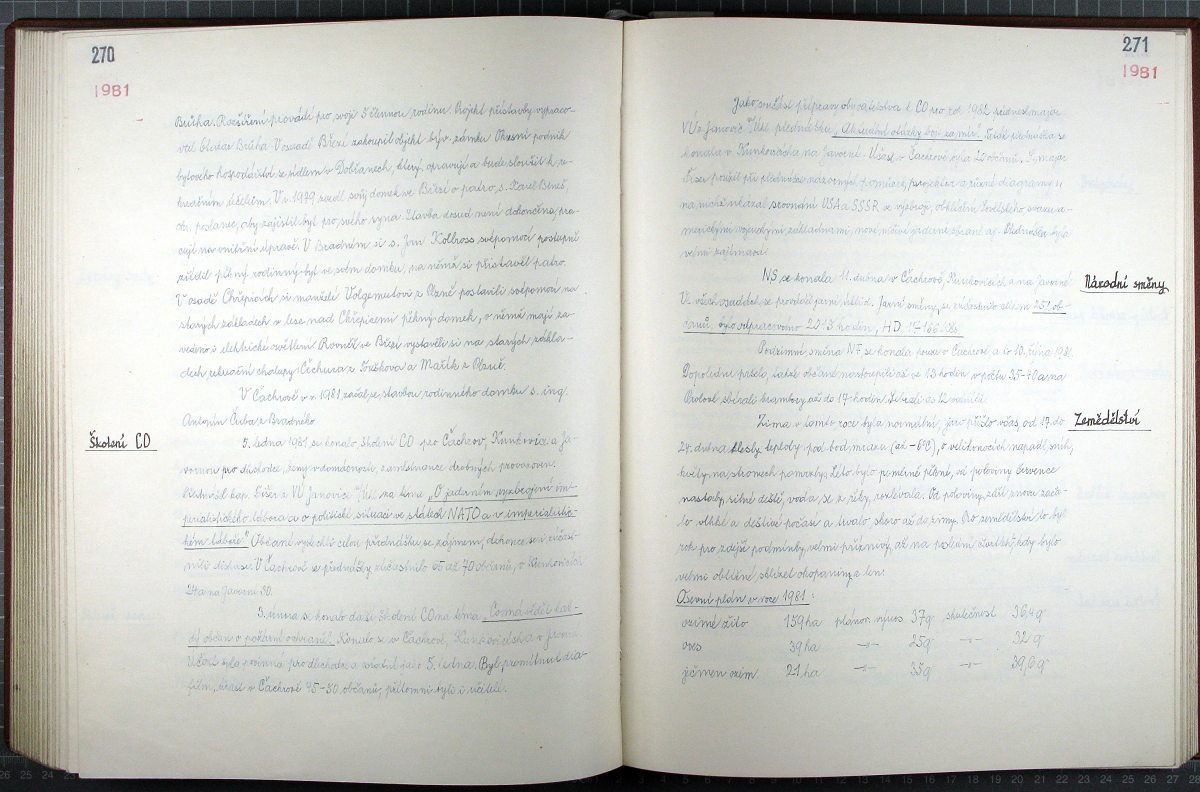 270
1981
Brůha. Rozšíření provádí pro svoji 5 člennou rodinu. Projekt přístavby vypraco-
val Otakar Brůha. V osadě Březí zakoupil objekt býv. zámku Okresní podnik
bytového hospodářství se sídlem v Dobřanech, který opravují a bude sloužit k re-
kreačním účelům. V r. 1979 začal svůj domek ve Březí o patro, s. Karel Beneš,
poslanec, aby zajistil byt pro svého syna. Stavba dosud není dokončena, pra-
cují na vnitřní úpravě. V Bradném si s. Jan Kollross svépomocí postupně
zřídil pěkný rodinný byt ve svém domku, na němž si přistavěl patro.
V osadě Chřepicích si manželé Volgemutovi z Plzně postavili svépomocí na
starých základech v lese nad Chřepicemi pěkný domek, v němž mají za-
vedeno i elektrické osvětlení. Rovněž ve Březí vystavěli si na starých zákla-
dech rekreační chalupy Čechura z Touškova a Mařík z Plzně.
V Čachrově v r. 1981 začal se stavbou rodinného domku s. ing.
Antonín Čuba z Bradného.
Školení CO
5. ledna 1981 se konalo školení CO pro Čachrov, Kunkovice a Ja-
vornou pro důchodce, ženy v domácnosti, zaměstnance drobných provozoven.
kap. Fišer z VÚ Janovice n/Úhl. na téma „O jaderném vyzbrojení im-
perialistického tábora a o politické situaci ve státech NATO a v imperialistic-
kém táboře." Občané vyslechli celou přednášku se zájmem, dokonce se i zúčast-
nili diskuse. V Čachrově se přednášky zúčastnilo 65 až 70 občanů, v Kunkovicích
24 a na Javorné 30.
3. února se konalo další školení CO na téma „Co má vědět kaž-
dý občan o požární ochraně". Konalo se v Čachrově, Kunkovicích a v Javorné.
Účast byla povinná pro důchodce a ostatní jako 5. ledna. Byl promítnut dia-
film, účast v Čachrově 45-50 občanů, přítomni byli i učitelé.
271
1981
Jako součást přípravy obyvatelstva k CO pro rok 1982 přednesl major
VÚ z Janovic n/Úhl. přednášku „Aktuální otázky boje za mír". Tato přednáška se
konala v Kunkovicích a na Javorné. Účast v Čachrově byla 20 občanů. S. major
Fišer použil při přednášce názorných pomůcek, projektor a různé diagramy a
na nich ukázal srovnání USA a SSSR ve výzbroji, obklíčení Sovětského svazu a-
merickými vojenskými základnami, nově ničivé jaderné zbraně aj. Přednáška byla
velmi zajímavá.
Národní směny
NS se konala 11. dubna v Čachrově, Kunkovicích a na Javorné.
Ve všech osadách se prováděl jarní úklid. Jarní směny se zúčastnilo celkem 251 ob-
čanů, bylo odpracováno 2013 hodin, HD 17 166 Kčs.
Podzimní směna NF se konala pouze v Čachrově a to 10. října 1981.
Dopoledne pršelo, takže občané nastoupili až ve 13 hodin v počtu 35-40 a na
sbírali brambory až do 17 hodin.
Zemědělství
Zima v tomto roce byla normální, jaro přišlo včas, od 17. do
24. dubna klesly teploty pod bod mrazu (až -6°C), o velikonocích napadl sníh,
květy na stromech pomrzly. Léto bylo poměrně pěkné, od poloviny července
nastaly silné deště, voda se z řeky rozlévala. Od poloviny září znovu zača-
lo vlhké a deštivé počasí a trvalo skoro až do zimy. Pro zemědělství to byl
rok pro zdejší podmínky velmi příznivý, až na podzim, kdy bylo
velmi obtížné sklízet okopaniny a len.
Osevní plán v roce 1981:
ozimé žito 159 ha plánov. výnos 37 q skutečnost 36,4 q
oves 39 ha -"- 25 q -"- 32 q
ječmen ozim. 21 ha -"- 35 q -"- 39,6 q